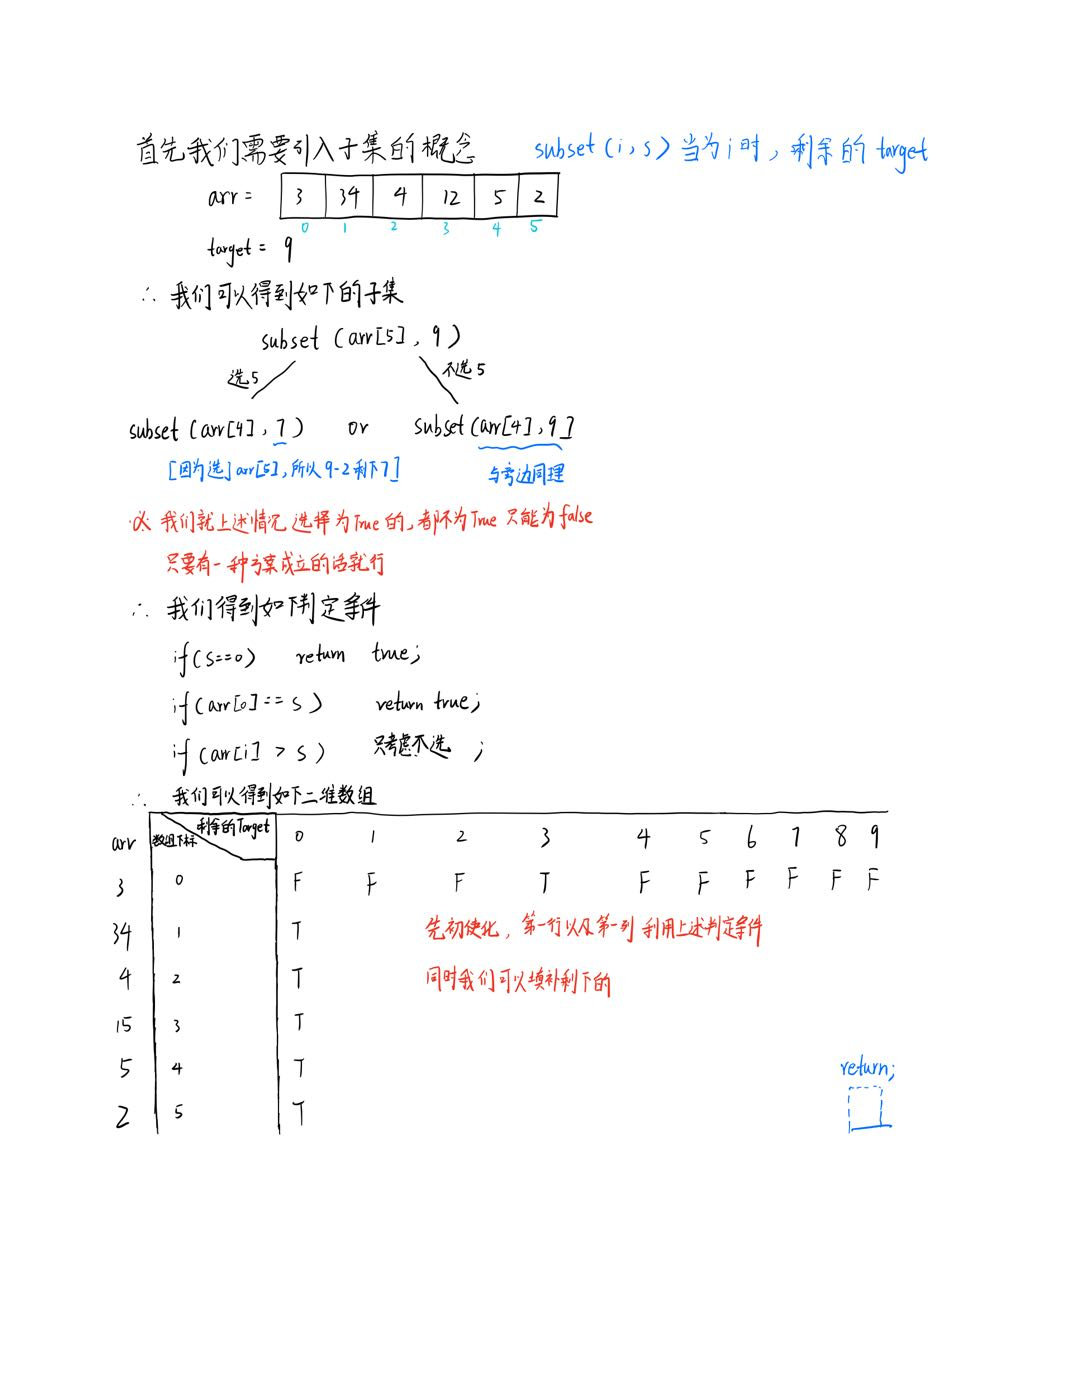 首先我们需要引入子集的概念 subset(i,s)当为i时，剩余的 target
arr = 3 34 4 12 5 2
0 1 2 3 4 5
target = 9
∴ 我们可以得到如下的子集
subset (arr[5], 9)
选5 不选5
subset (arr[4], 7) or subset (arr[4], 9]
[因为选] arr[5], 所以 9-2 剩下7] 与旁边同理
我们就上述情况 选择为True的, 都不为True 只能为false
只要有一种方案成立的话就行
∴ 我们得到如下判定条件
if(s==0) return true;
if(arr[0]==s) return true;
if(arr[i] > s) 只考虑不选 ;
∴ 我们可以得到如下二维数组
arr 数组下标 剩余的Target 0 1 2 3 4 5 6 7 8 9
3 0 F F F T F F F F F F
34 1 T 先初使化, 第一行以及第一列 利用上述判定条件
4 2 T 同时我们可以填补剩下的
15 3 T
5 4 T return;
2 5 T